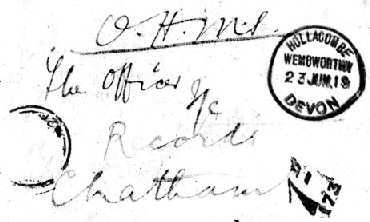 O.H.M.S.
The Officer i/c
Records
Chatham
HOLLACOMBE
WEMBWORTHY
23 JUN.19
DEVON